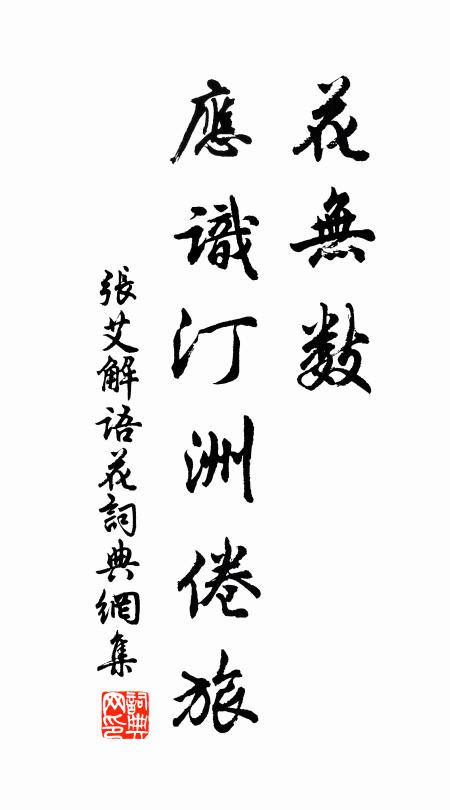 花無数
應識汀洲倦旅
張艾解語花詞典網集
詞典網印